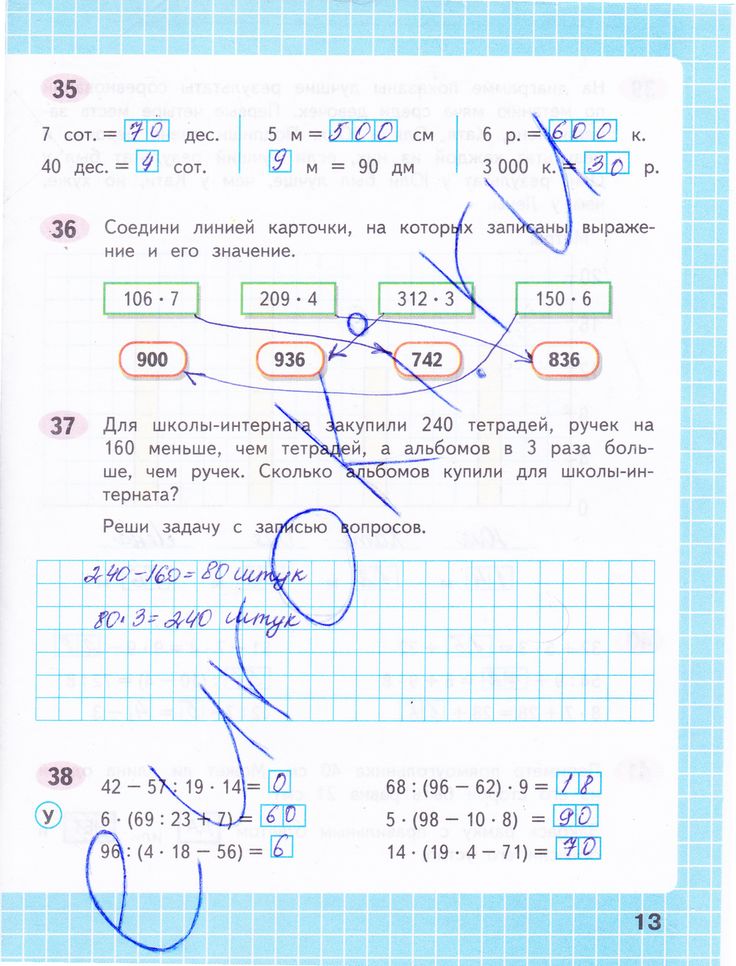 35
7 сот. = 70 дес. 5 м = 500 см 6 р. = 600 к.
40 дес. = 4 сот. 9 м = 90 дм 3 000 к. = 30 р.
36 Соедини линией карточки, на которых записаны выраже-
ние и его значение.
106 · 7 209 · 4 312 · 3 150 · 6
900 936 742 836
37 Для школы-интерната закупили 240 тетрадей, ручек на
160 меньше, чем тетрадей, а альбомов в 3 раза боль-
ше, чем ручек. Сколько альбомов купили для школы-ин-
терната?
Реши задачу с записью вопросов.
240-160=80 штук
80·3=240 штук
38
42 − 57 : 19 · 14 = 0 68 : (96 − 62) · 9 = 18
У
6 · (69 : 23 + 7) = 60 5 · (98 − 10 · 8) = 90
96 : (4 · 18 − 56) = 6 14 · (19 · 4 − 71) = 70
13